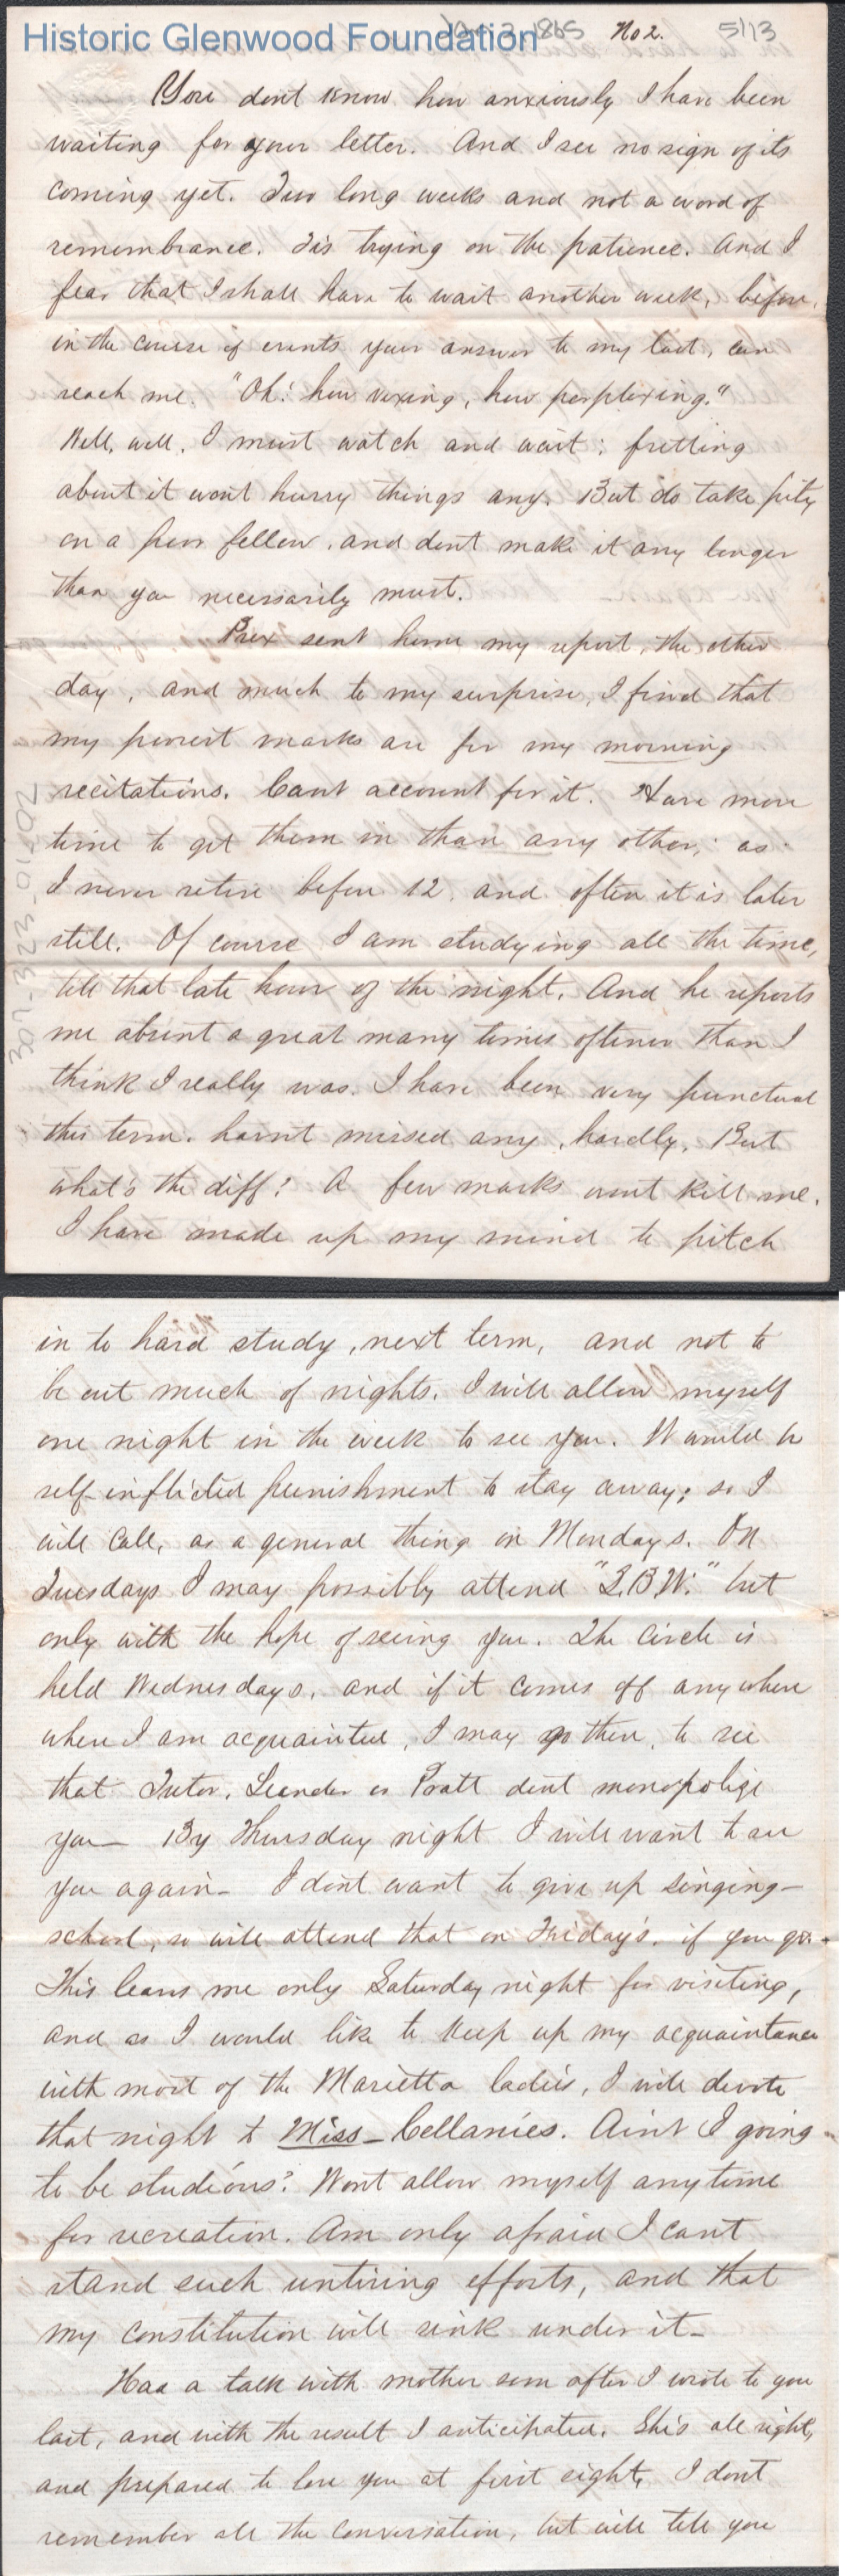 Historic Glenwood Foundation
Jan 2 1865 No 2. 5/13
You dont know how anxiously I have been
waiting for your letter. And I see no sign of its
coming yet. Two long weeks and not a word of
remembrance. Tis trying on the patience. And I
fear that I shall have to wait another week, before,
in the course of events your answer to my last, can
reach me. "Oh! how vexing, how perplexing."
Well, well, I must watch and wait; fretting
about it wont hurry things any. But do take pity
on a poor fellow, and dont make it any longer
than you necessarily must.
Prex sent home my report, the other
day, and much to my surprise, I find that
my poorest marks are for my morning
recitations. Cant account for it. Have more
time to get them in than any other; as
I never retire before 12, and often it is later
still. Of course I am studying all the time,
till that late hour of the night. And he reports
me absent a great many times oftener than I
think I really was. I have been very punctual
this term. havnt missed any, hardly. But
what's the diff? A few marks wont kill me.
I have made up my mind to pitch
307-323-01-02
in to hard study, next term, and not to
be out much of nights. I will allow myself
one night in the week to see you. Would be
self-inflicted punishment to stay away; so I
will call, as a general thing on Mondays. On
Tuesdays I may possibly attend "S.B.W." but
only with the hope of seeing you. The Circle is
held Wednesdays, and if it comes off anywhere
where I am acquainted, I may go then, to see
that Tutor, Leander or Pratt dont monopolize
you— By Thursday night I will want to see
you again— I dont want to give up singing-
school, so will attend that on Friday's, if you go.
This leaves me only Saturday night for visiting,
and as I would like to keep up my acquaintance
with most of the Marietta ladies, I will devote
that night to Miss-Cellanies. Aint I going
to be studious? Wont allow myself anytime
for recreation. Am only afraid I cant
stand such untiring efforts, and that
my constitution will sink under it—
Had a talk with mother soon after I wrote to you
last, and with the result I anticipated. She's all right,
and prepared to love you at first sight, I dont
remember all the conversation, but will tell you